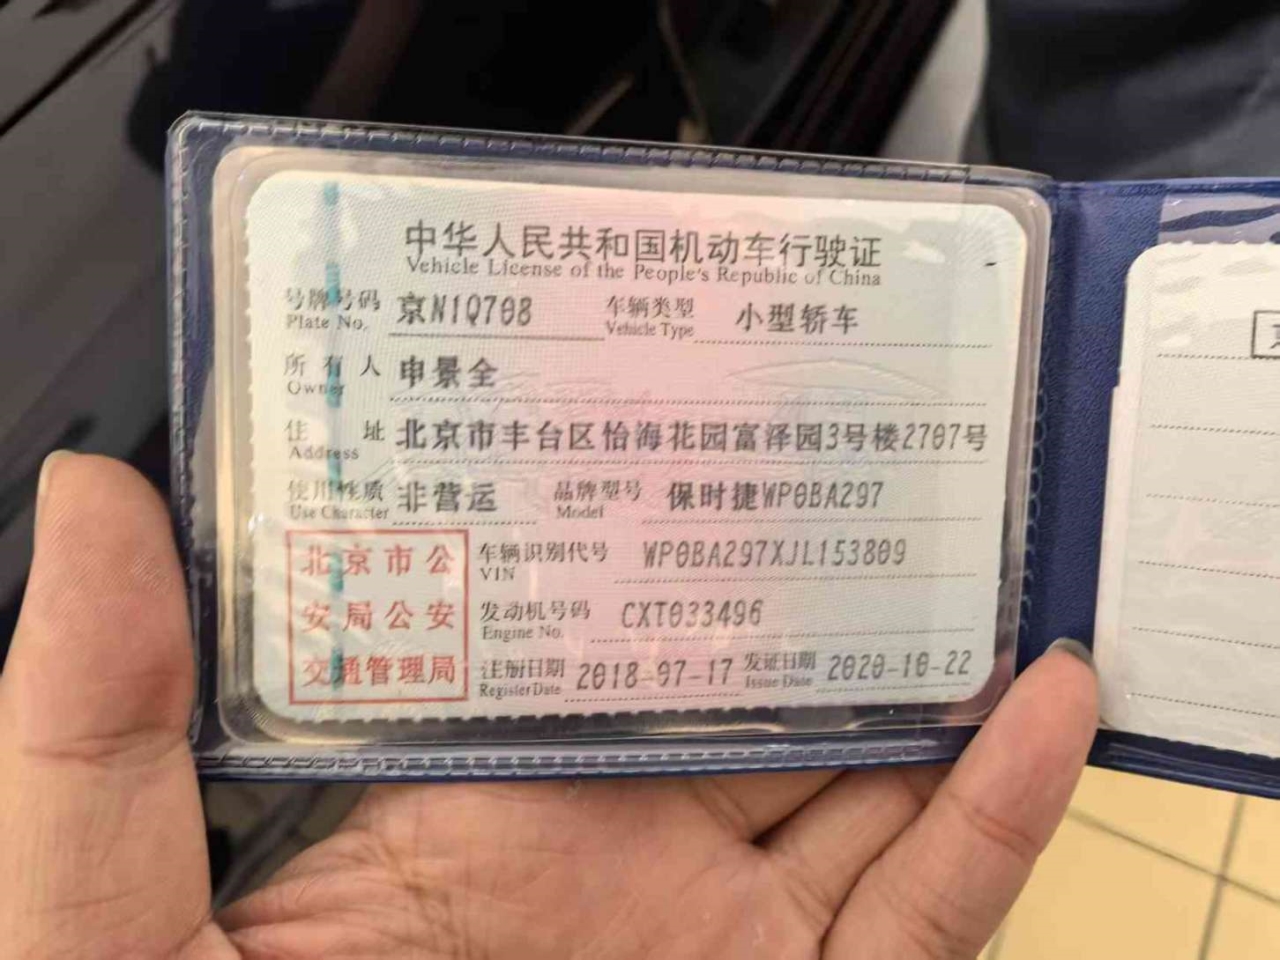 中华人民共和国机动车行驶证
Vehicle License of the People's Republic of China
号牌号码 京N1Q708 车辆类型 小型轿车
Plate No. Vehicle Type
所有人 申景全
Owner
住址 北京市丰台区怡海花园富泽园3号楼2707号
Address
使用性质 非营运 品牌型号 保时捷WP0BA297
Use Character Model
北京市公 车辆识别代号 WP0BA297XJL153809
VIN
安局公安 发动机号码 CXT033496
Engine No.
交通管理局 注册日期 2018-07-17 发证日期 2020-10-22
Register Date Issue Date